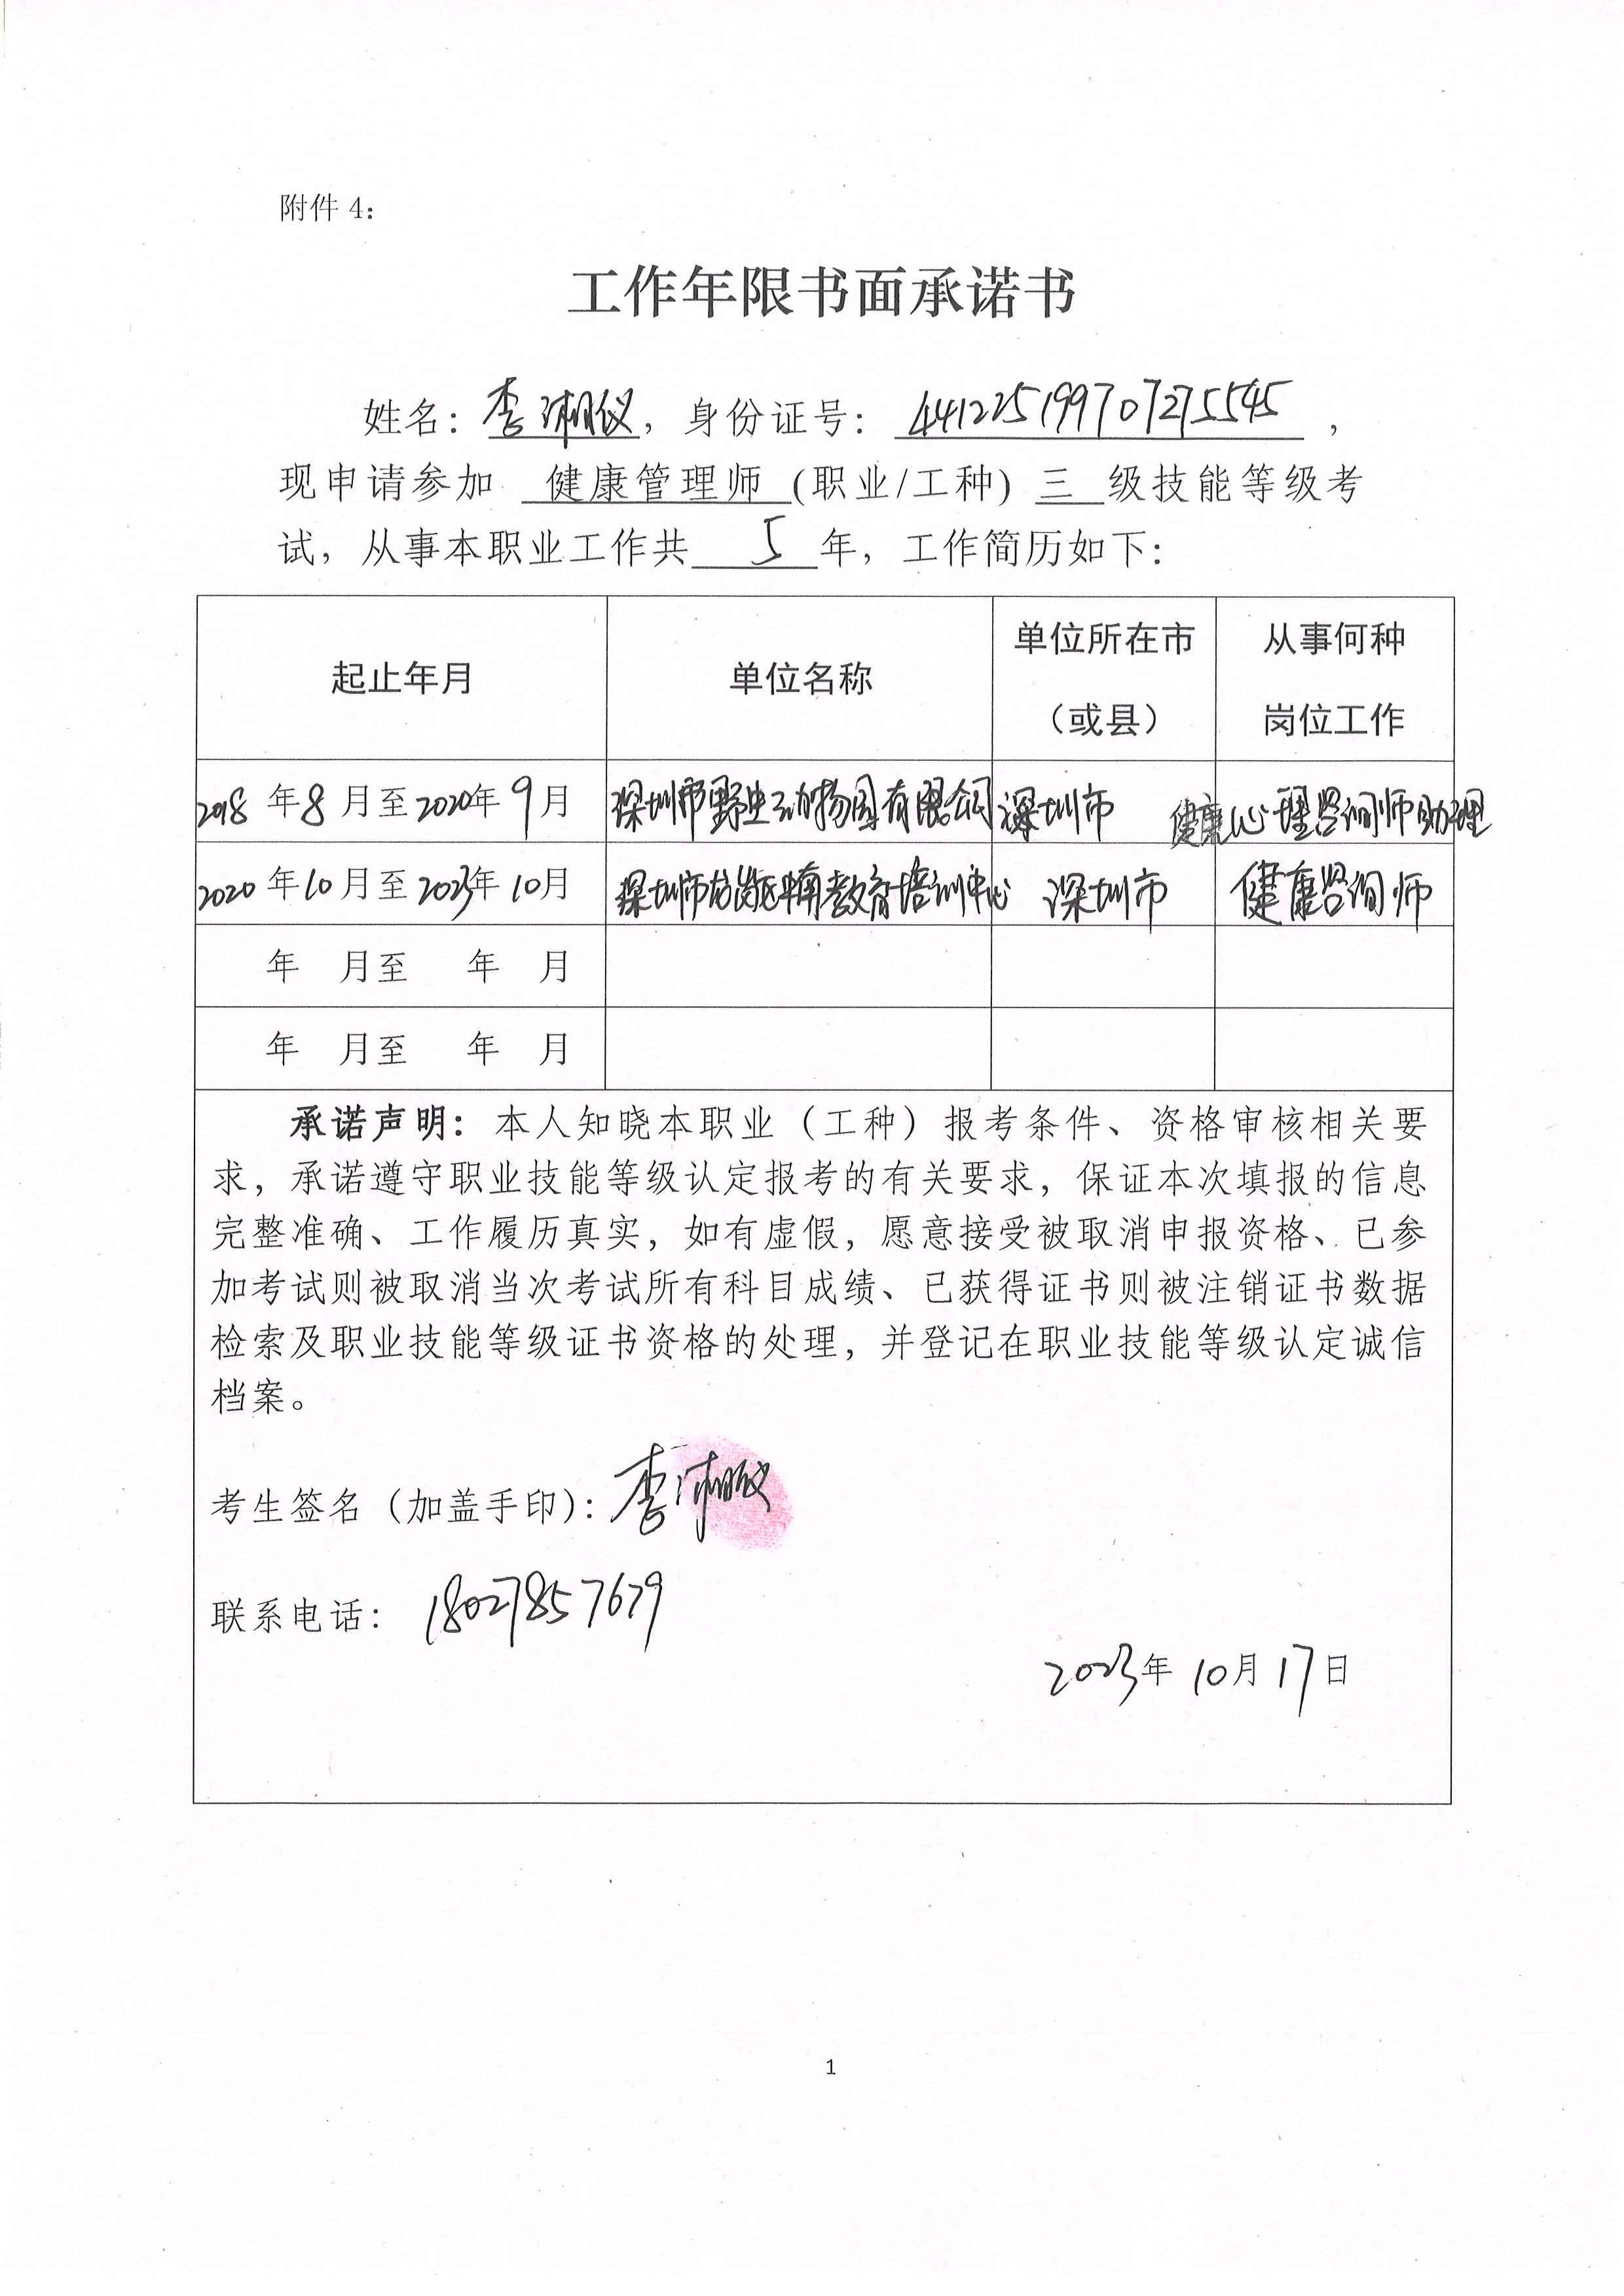 附件 4：
工作年限书面承诺书
姓名：李湘仪，身份证号：441225199707275545，
现申请参加 健康管理师 (职业/工种) 三 级技能等级考
试，从事本职业工作共 5 年，工作简历如下：
起止年月 单位名称 单位所在市（或县） 从事何种岗位工作
2018 年 8 月至 2020年 9 月 深圳市野生动物园有限公司 深圳市 健康心理咨询师助理
2020 年 10 月至 2023年 10月 深圳市龙岗区 教育培训中心 深圳市 健康咨询师
年 月至 年 月
年 月至 年 月
承诺声明：本人知晓本职业（工种）报考条件、资格审核相关要
求，承诺遵守职业技能等级认定报考的有关要求，保证本次填报的信息
完整准确、工作履历真实，如有虚假，愿意接受被取消申报资格、已参
加考试则被取消当次考试所有科目成绩、已获得证书则被注销证书数据
检索及职业技能等级证书资格的处理，并登记在职业技能等级认定诚信
档案。
考生签名（加盖手印）：李湘仪
联系电话： 18027857679
2023年 10月 17日
1